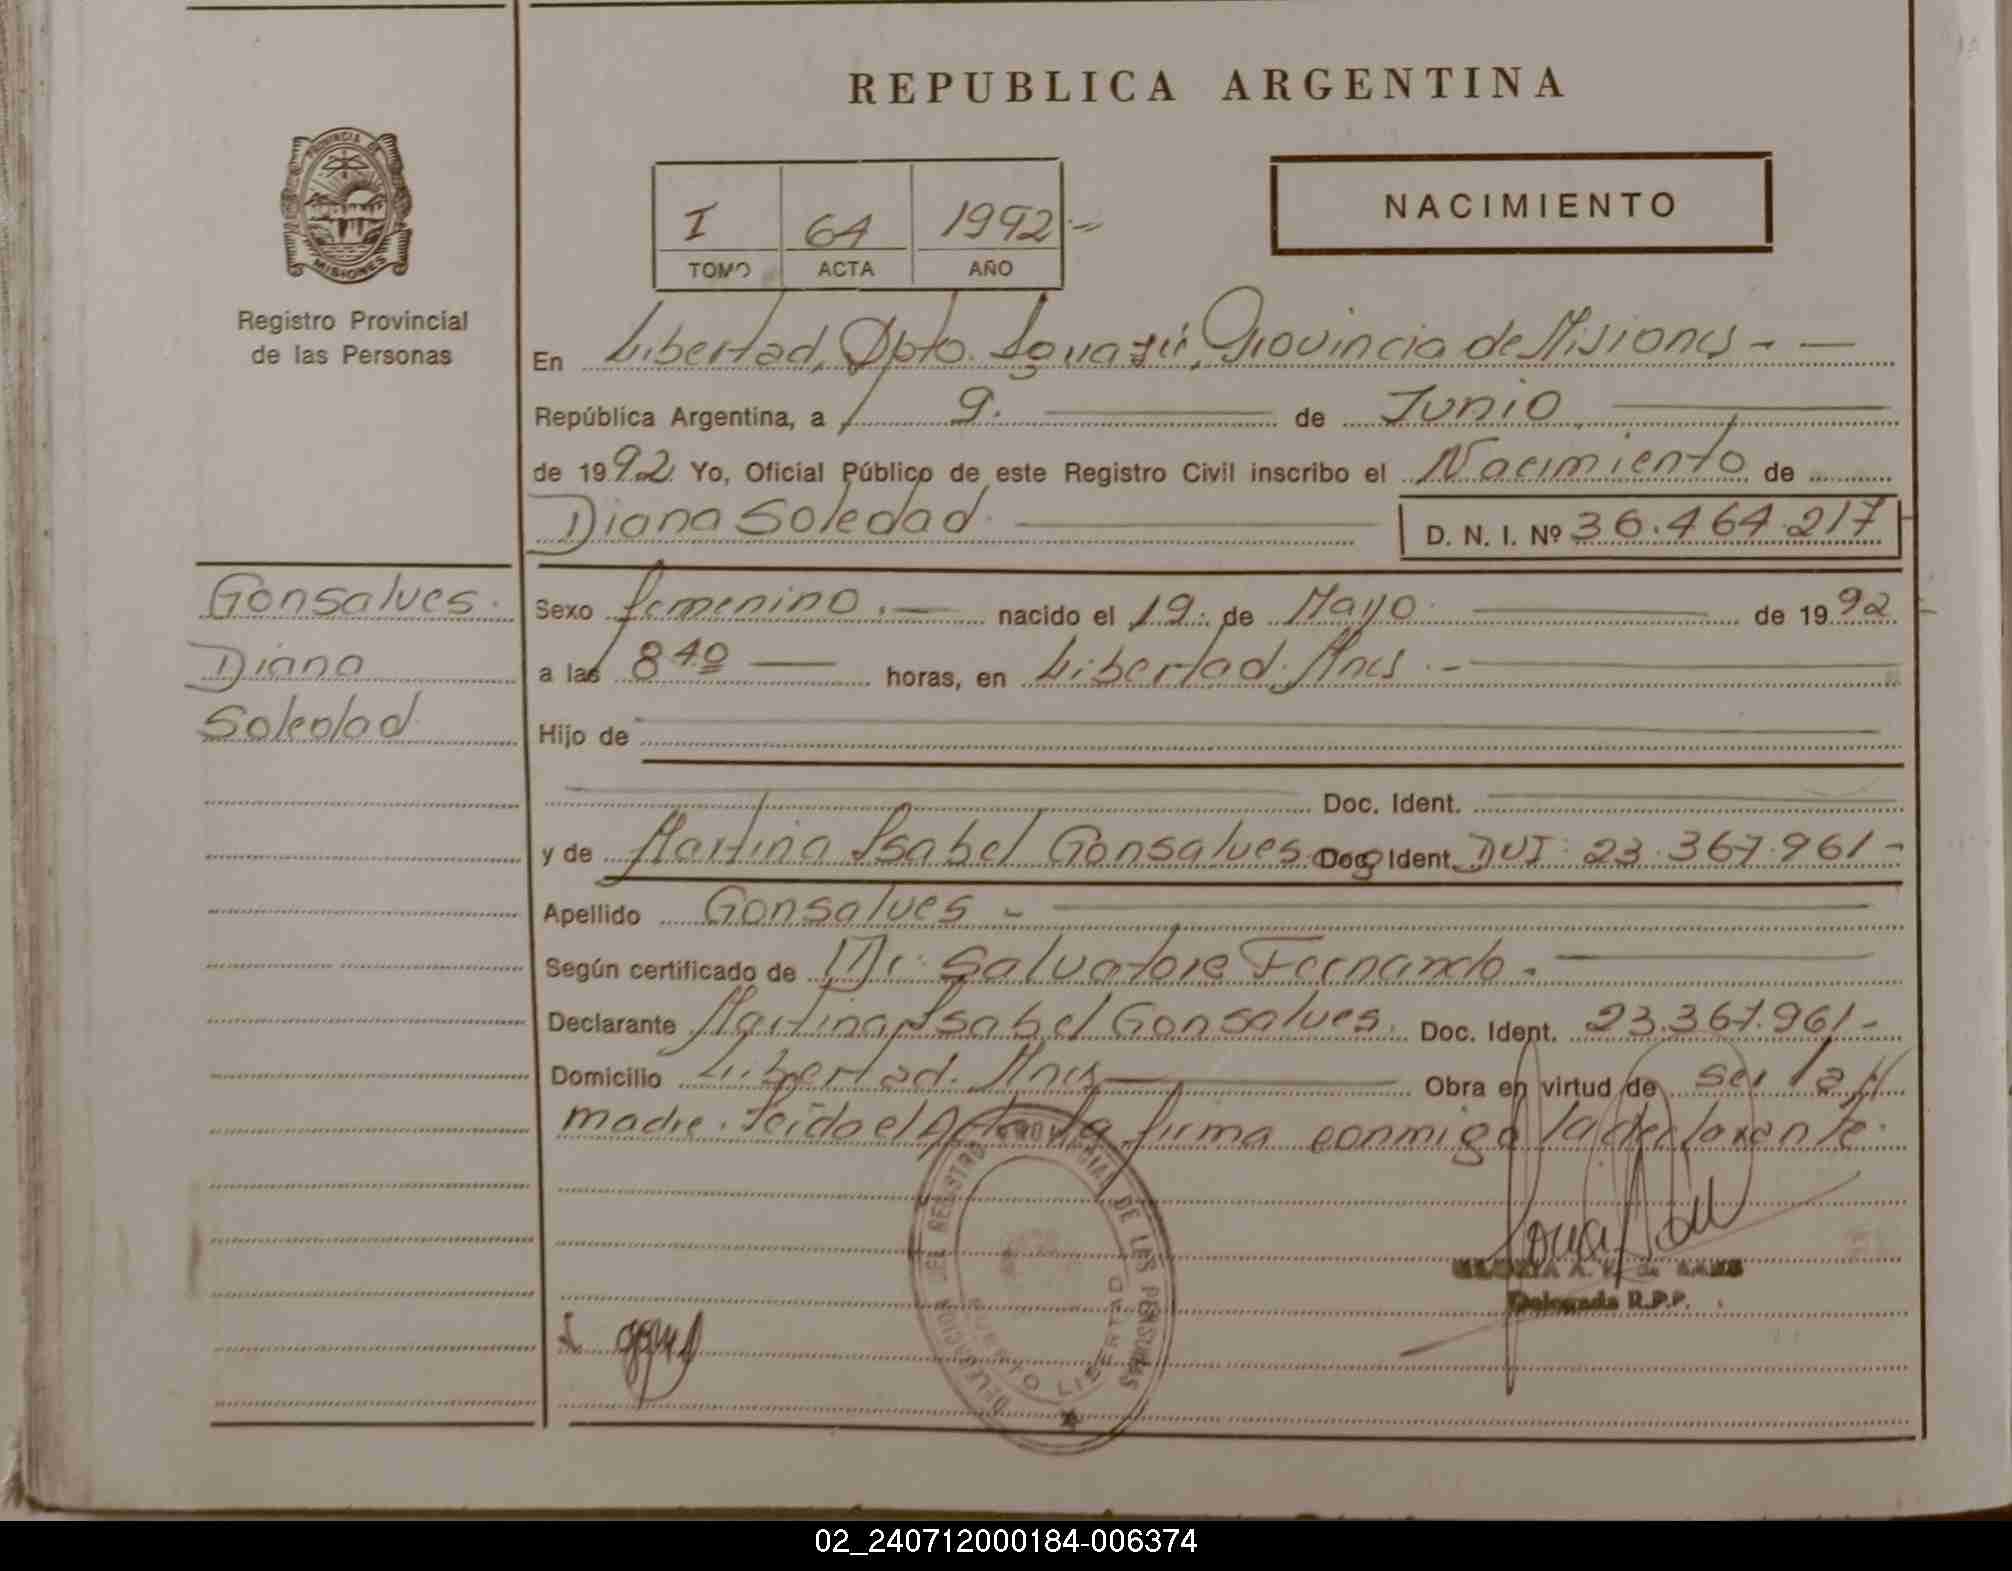 REPUBLICA ARGENTINA
PROVINCIA DE
MISIONES
Registro Provincial
de las Personas
I 64 1992.-
TOMO ACTA AÑO
NACIMIENTO
En Libertad, Dpto. Iguazú, Provincia de Misiones - —
República Argentina, a 9. de Junio
de 1992 Yo, Oficial Público de este Registro Civil inscribo el Nacimiento de
Diana Soledad D. N. I. Nº 36.464.217
Gonsalves.
Diana
Soledad
Sexo femenino.- nacido el 19. de Mayo de 1992
a las 8 40 horas, en Libertad. Mnes.-
Hijo de
Doc. Ident.
y de Martina Isabel Gonsalves Doc. Ident. DUI: 23.367.961-
Apellido Gonsalves -
Según certificado de Dr. Salvatore Fernando.
Declarante Martina Isabel Gonsalves. Doc. Ident. 23.367.961-
Domicilio Libertad. Mnes Obra en virtud de ser la
madre. Leída el Acta la firma conmigo la declarante.
DELEGACION DEL REGISTRO PROVINCIAL DE LAS PERSONAS
LIBERTAD
Delegada R.P.P.
02_240712000184-006374